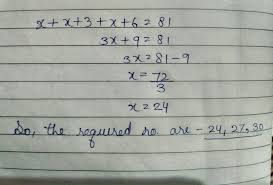 x + x + 3 + x + 6 = 81
3x + 9 = 81
3x = 81 - 9
x = 72/3
x = 24
So, the required no. are - 24, 27, 30